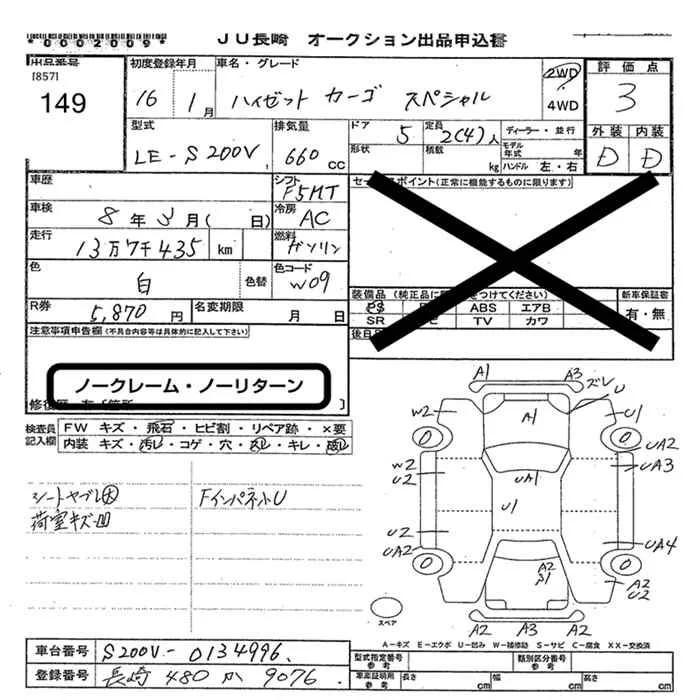 *0002009*
JU長崎 オークション出品申込書
出品番号
[857]
149
初度登録年月
16 1月
車名・グレード
ハイゼット カーゴ スペシャル
2WD
4WD
評価点
3
外装 内装
D D
型式
LE-S200V
排気量
660cc
ドア
5
定員
2(4)人
形状
積載
kg
ディーラー・並行
モデル年式 年
ハンドル 左・右
車歴
シフト
F5MT
車検
8年3月( 日)
冷房
AC
走行
13万7千435 km
燃料
ガソリン
色
白
色替
色コード
W09
R券
5,870円
名変期限
月 日
セールスポイント(正常に機能するものに限ります)
装備品
PS
ABS エアB
SR
TV カワ
新車保証書
有・無
注意事項申告欄(不具合内容等は具体的に記入して下さい)
ノークレーム・ノーリターン
検査員記入欄
FW キズ・飛石・ヒビ割・リペア跡・×要
内装 キズ・汚レ・コゲ・穴・
・キレ・
シートヤブレ大
荷室キズ凹
FインパネトU
A1 A3 ズレ U
W2 A1 U1
UA2
W2 UA1 UA3
U2
U1
U2
UA2 UA4
A2
A2
U2
A2 A3 A2
スペア
A-キズ E-エクボ U-凹み W-補修跡 S-サビ C-腐食 XX-交換済
車台番号 S200V-0134996
登録番号 長崎 480 か 9076
型式指定番号
参考
類別区分番号
参考
車庫証明用
参考
長さ cm 幅 cm 高さ cm